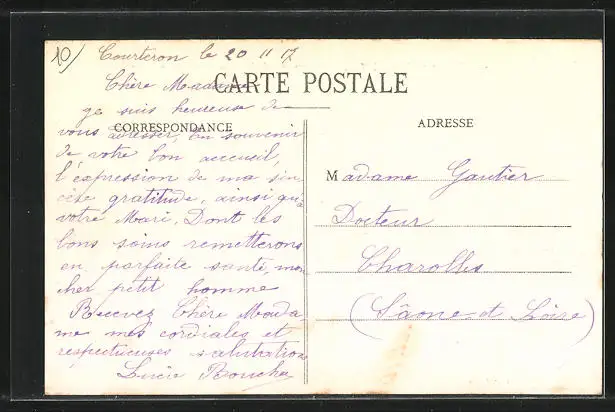 10/ Courteron le 20 11 17
Chère Madame
CARTE POSTALE
ge suis heureuse de
CORRESPONDANCE
vous adresser, en souvenir
de votre bon accueil,
l'expression de ma sin
cère gratitude, ainsi qu'à
votre Mari, Dont les
bons soins remetterons
en parfaite santé, mon
cher petit homme
Recevez Chère Mada-
me mes cordiales et
respectueuses salutations
Lucie
ADRESSE
Madame Gautier
Docteur
Charolles
(Sâone et Loire)